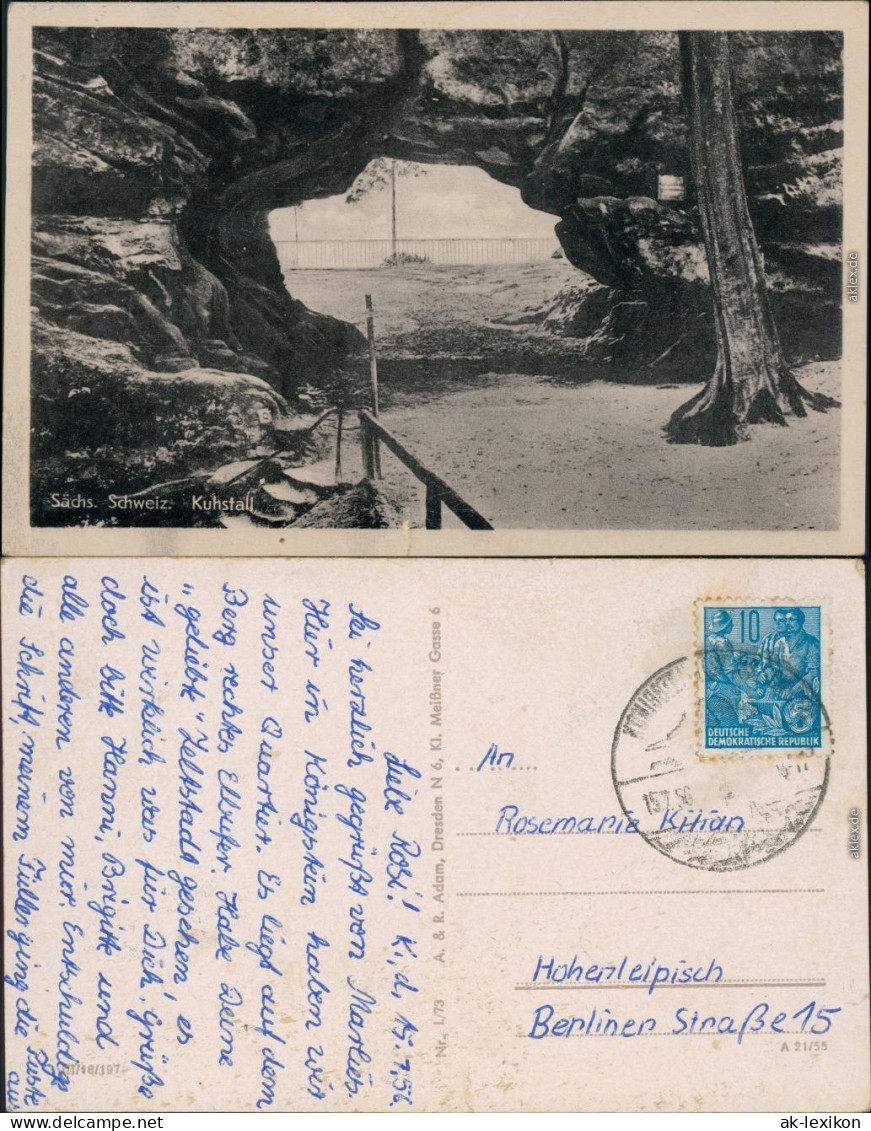 Sächs. Schweiz. Kuhstall
aklex.de
K., d. 15.7.56
Liebe Rosi!
Sei herzlich gegrüßt von Marlies.
Hier im Königstein haben wir
unser Quartier. Es liegt auf dem
Berg rechtes Elbufer. Habe Deine
"geliebte" Zeltstadt gesehen, es
ist wirklich was für Dich! Grüße
doch bitte Hanni, Brigitte und
alle anderen von mir. Entschuldige
die Schrift, meinem Füller ging die Puste
aus
Nr. L/73 A. & R. Adam, Dresden N 6, Kl. Meißner Gasse 6
10
DEUTSCHE
DEMOKRATISCHE REPUBLIK
15.7.56
An
Rosemarie Kilian
Hohenleipisch
Berliner Straße 15
A 21/55
/18/197
aklex.de
ak-lexikon.de
ak-lexikon